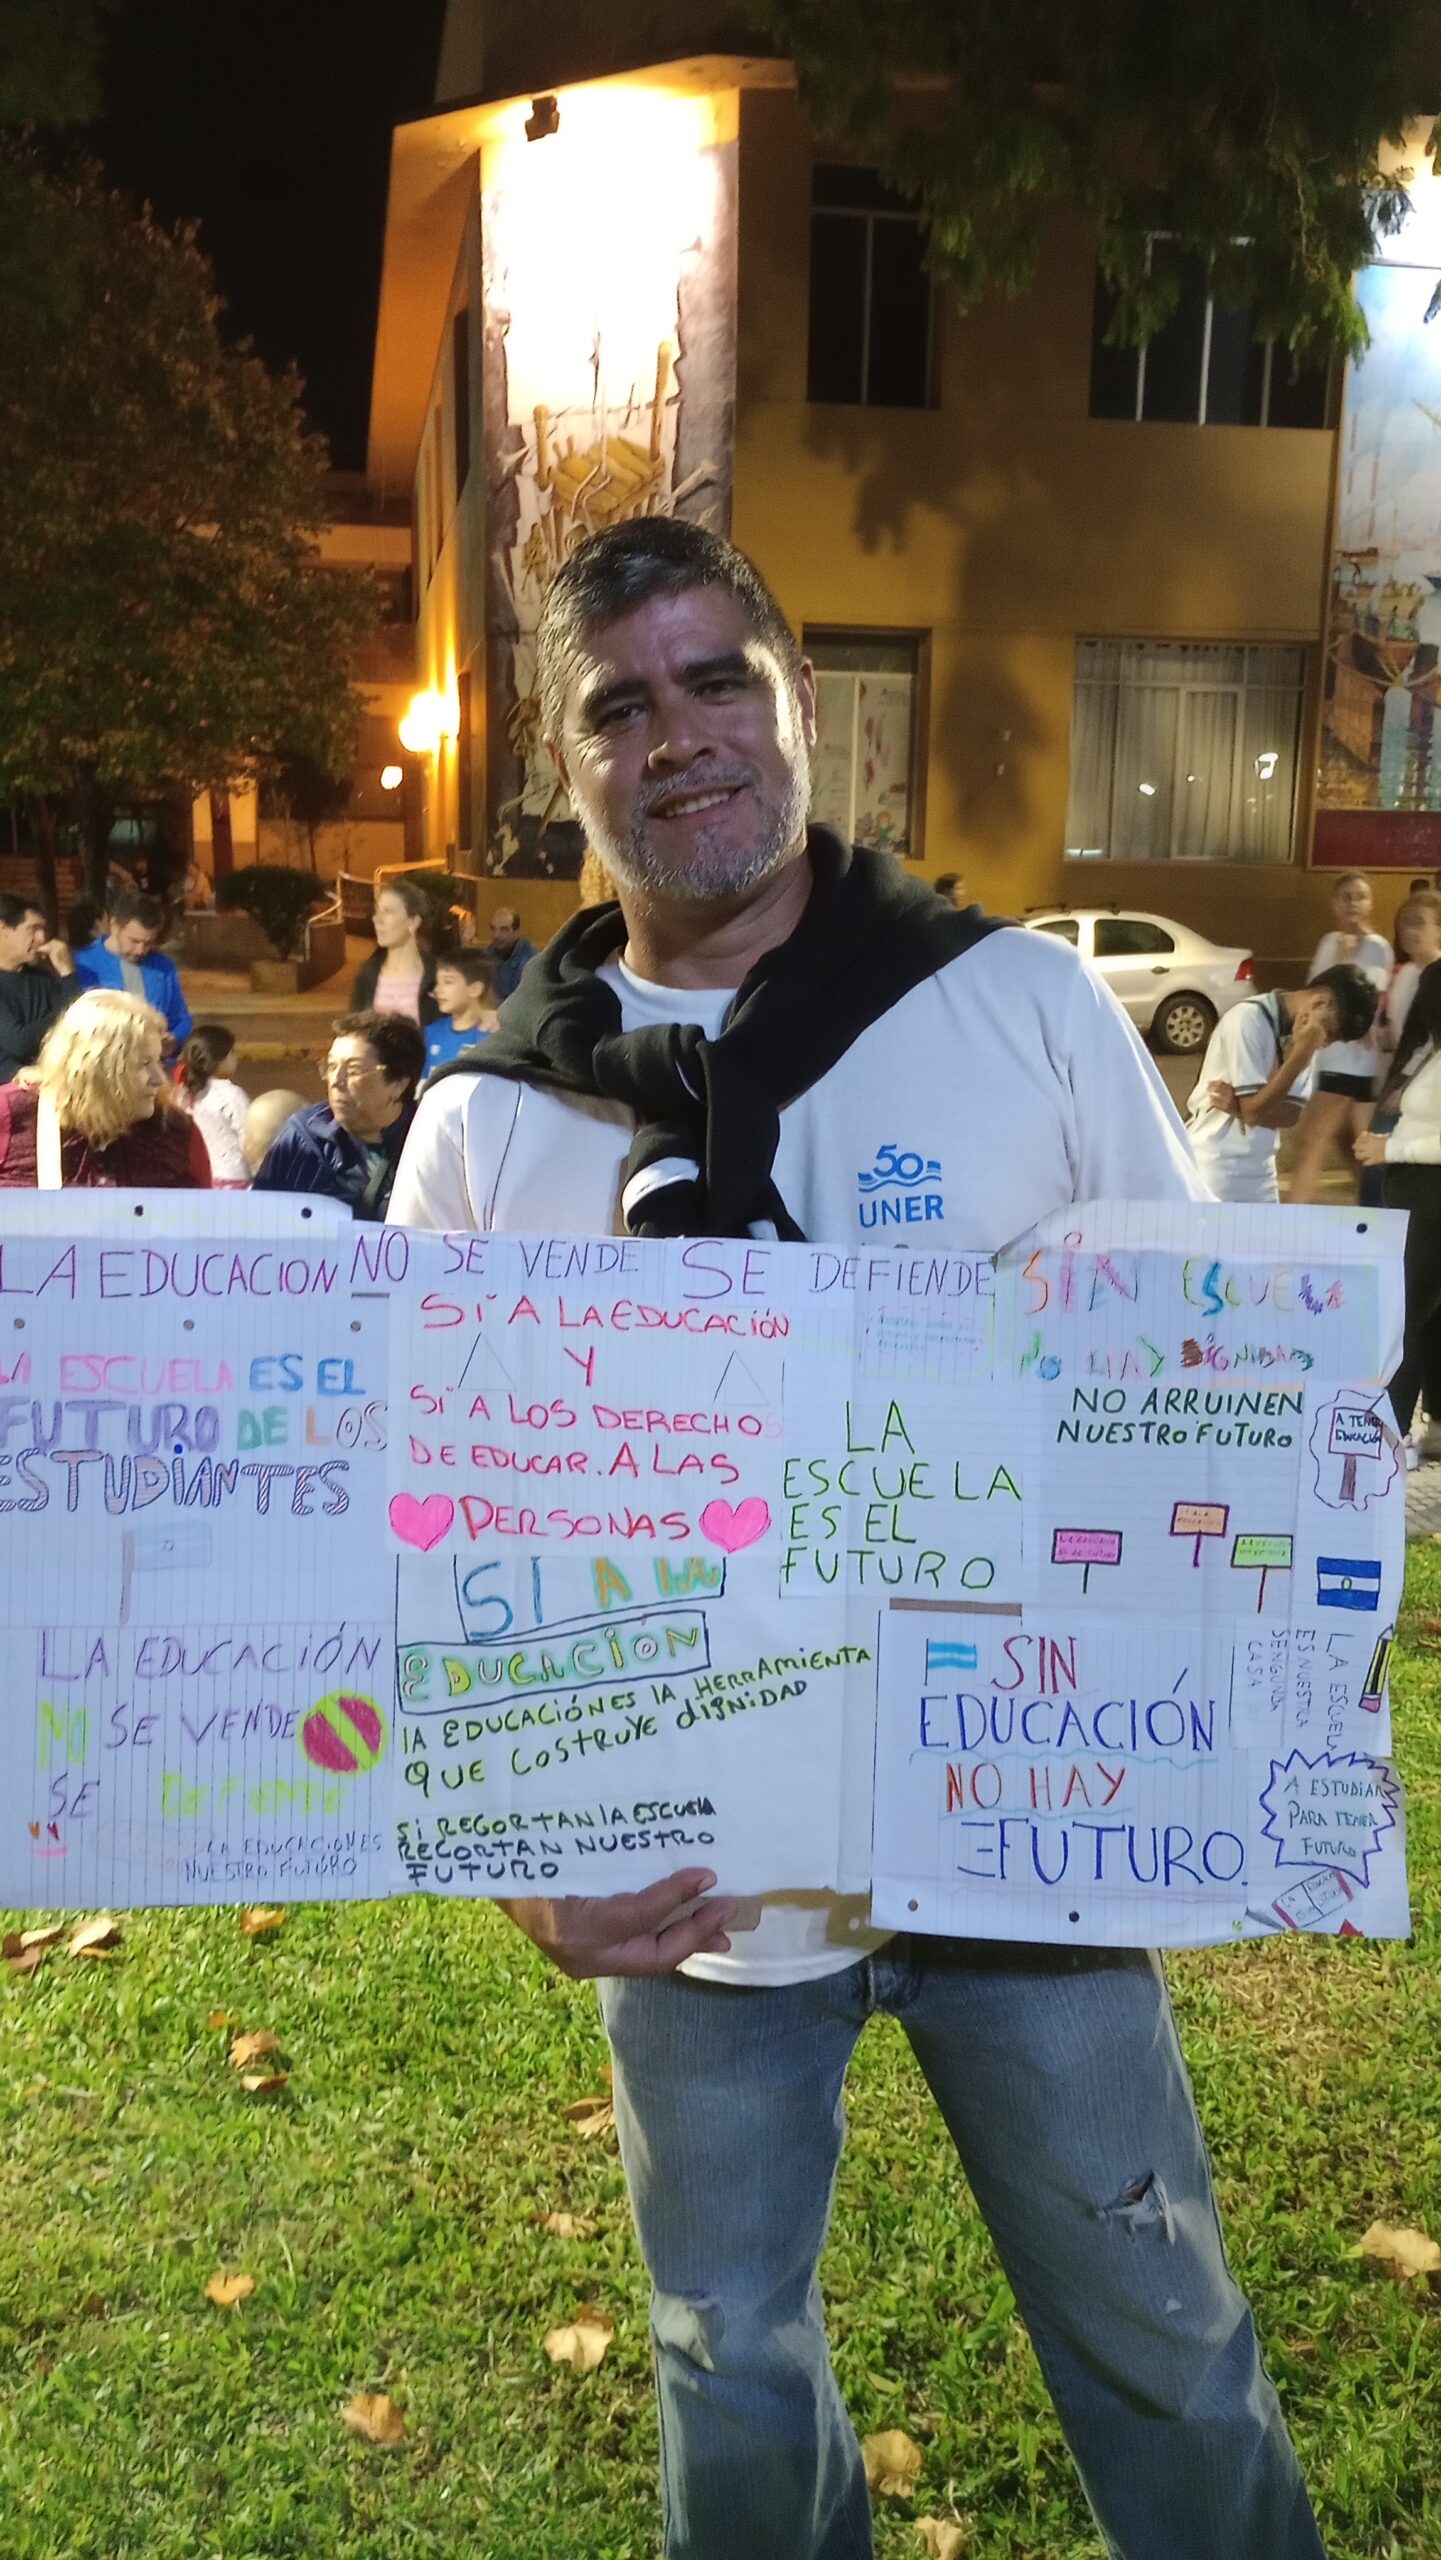 50
UNER
LA EDUCACION NO SE VENDE SE DEFIENDE
LA ESCUELA ES EL
FUTURO DE LOS
ESTUDIANTES
SI A LA EDUCACIÓN
Y
SI A LOS DERECHOS
DE EDUCAR. A LAS
PERSONAS
SIN ESCUELA
NO HAY DIGNIDAD
LA
ESCUELA
ES EL
FUTURO
NO ARRUINEN
NUESTRO FUTURO
A TENER
EDUCACIÓN
LA EDUCACIÓN
NO SE VENDE
SE DEFIENDE
LA EDUCACIONES
NUESTRO FUTURO
SI A LA
EDUCACIÓN
LA EDUCACIÓN ES LA HERRAMIENTA
QUE COSTRUYE DIGNIDAD
SI REGORTAN LA ESCUELA
RECORTAN NUESTRO
FUTURO
SIN
EDUCACIÓN
NO HAY
FUTURO.
LA ESCUELA
ES NUESTRA
SENGUNDA
CASA
A ESTUDIAR
PARA TENER
FUTURO